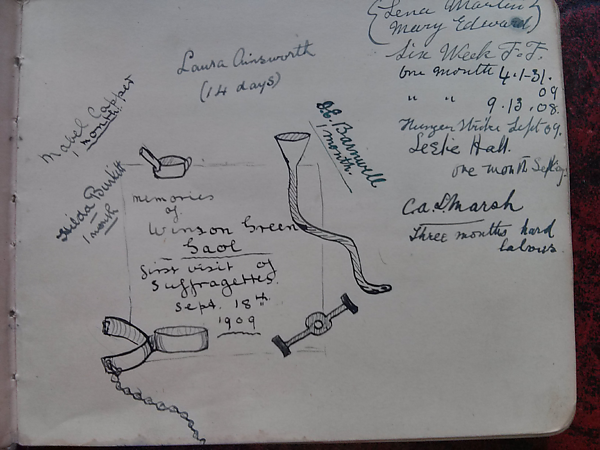 {Lena Martin}
(Mary Edward)
Six Week F.F.
one month 4.1-31.
09
" " 9.13.08.
Hunger Strike Sept 09.
Leslie Hall.
one month Sep
C.A.L. Marsh
Three months hard
labour
Laura Ainsworth
(14 days)
Mabel Capper
1 month
Hilda Burkitt
1 month
Barnwell
1 month
memories
of
Winson Green
Gaol
first visit of
Suffragettes.
Sept. 18th
1909